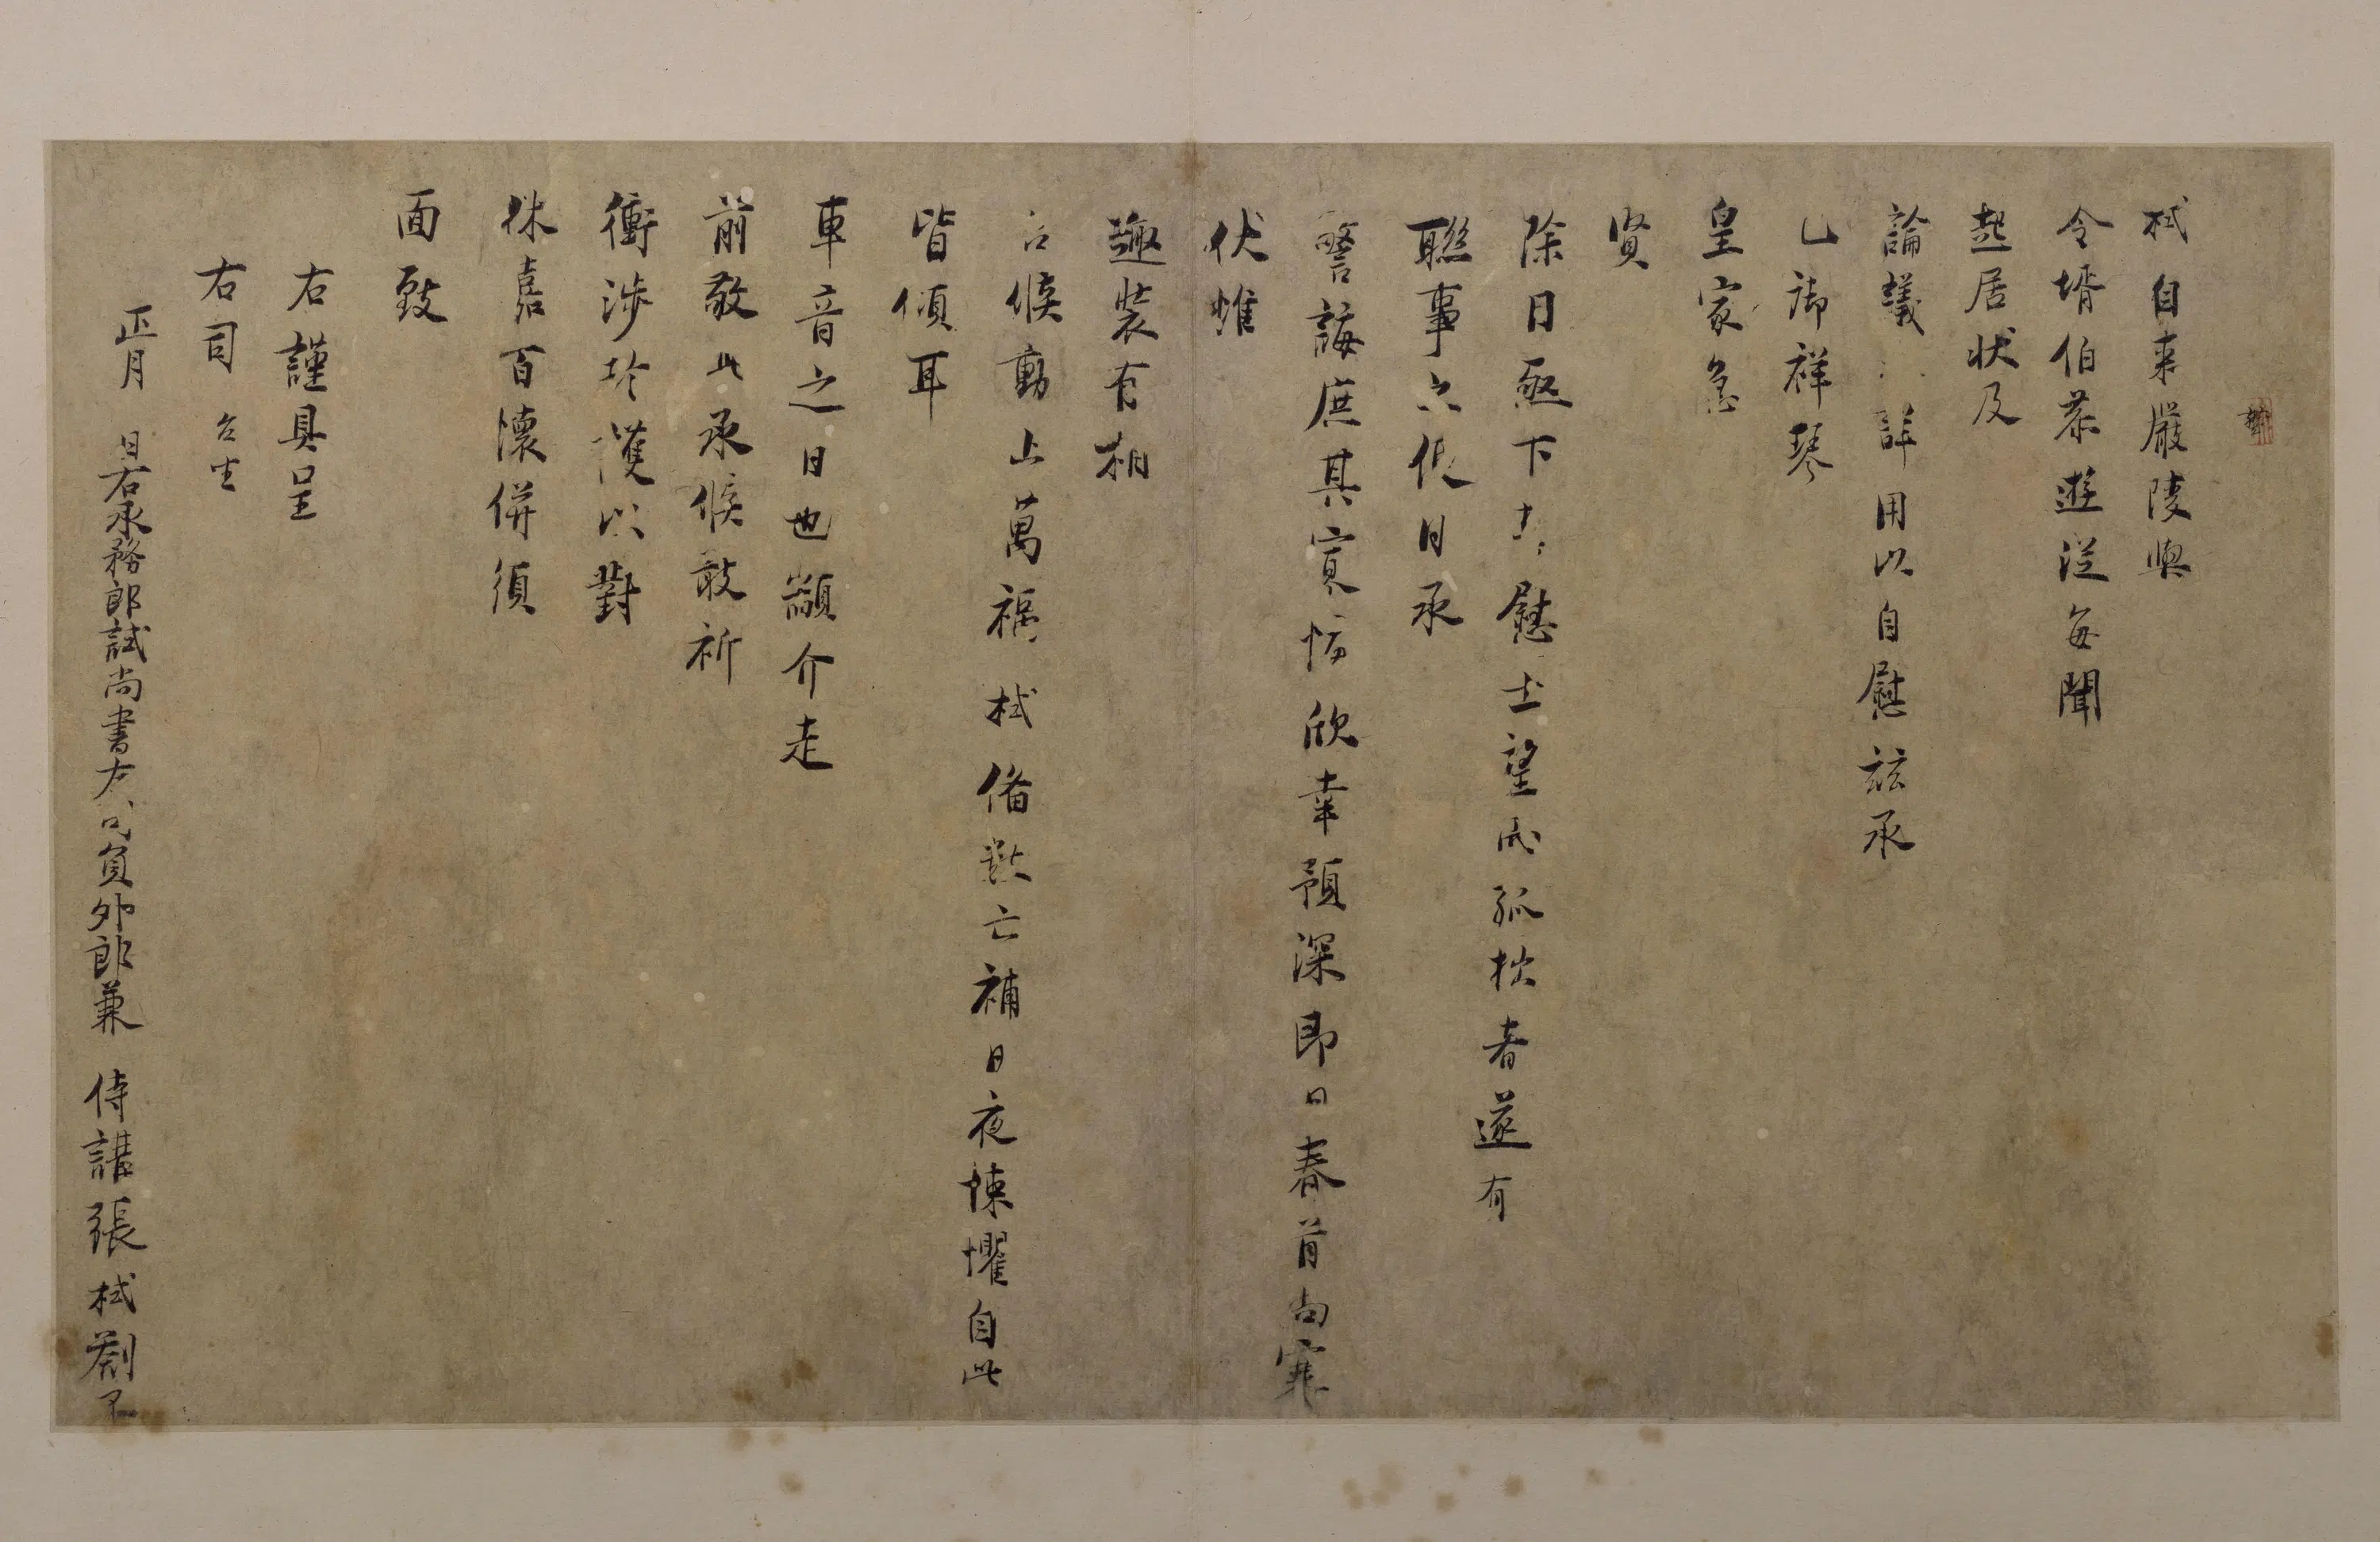 栻自來嚴陵與
令壻伯恭遊從每聞
起居狀及
論議詳用以自慰茲承
已御祥琴
皇家急
賢
除目亟下大慰士望而孤拙者遂有
聯事之便日承
警誨庶其寡悔欣幸預深即日春首尚寒
伏惟
趣裝有相
台候動止萬福栻備數亡補日夜悚懼自此
皆傾耳
車音之日也顓介走
前敬此承候敢祈
衝涉珍護以對
休嘉百懷併須
面致
右謹具呈
右司 台坐
正月 日右承務郎試尚書左司員外郎兼 侍講張栻劄子